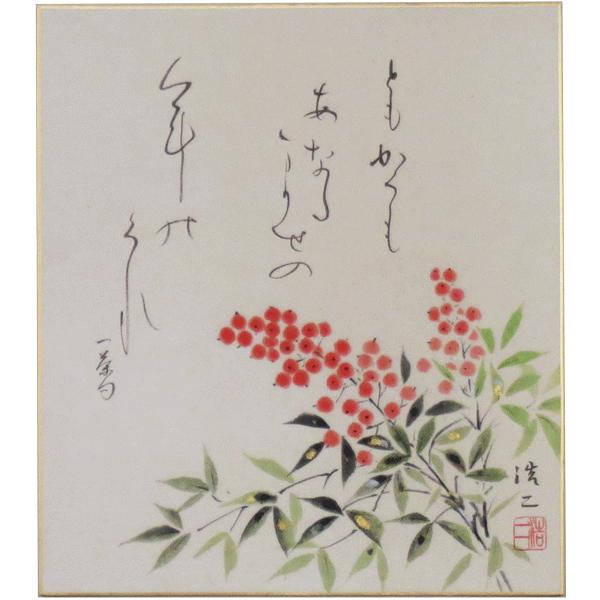 ともかくも
あなた
まかせの
年の
くれ
一茶句
浩二
浩二